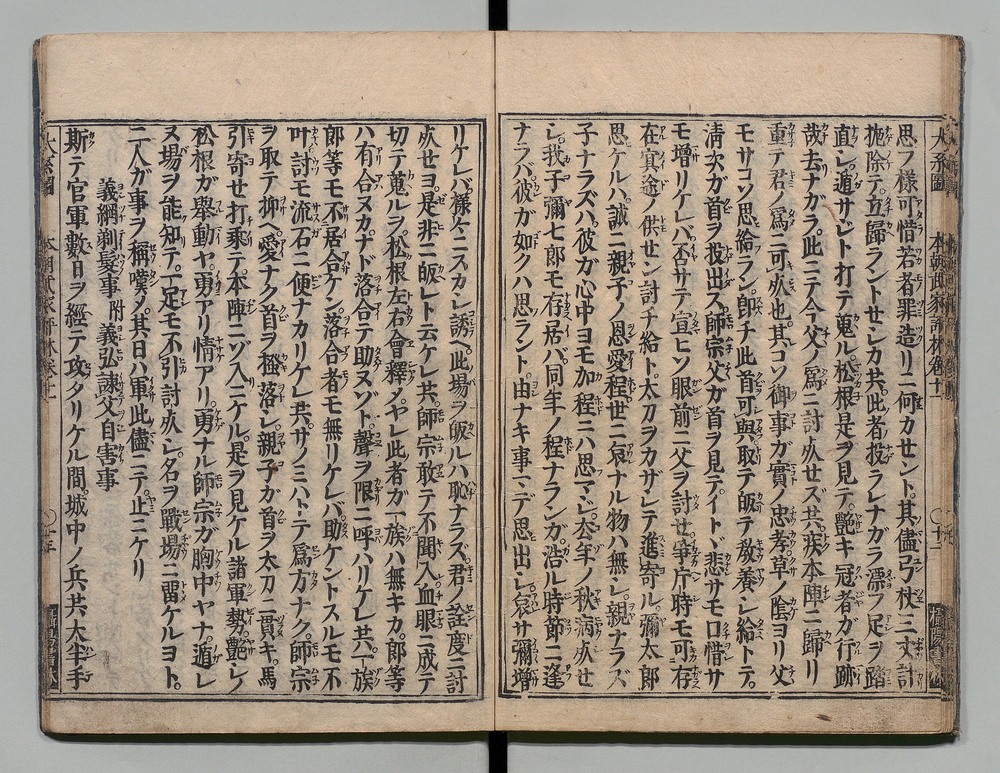 大系圖　本朝武家評林卷十一　〇十二
思フ様可惜若者罪造リニ何カセント。其儘弓杖三丈計
抛除テ。立歸ラントセシカ共。此者投ラレナガラ。漂フ足ヲ踏
直シ。遁サジト打テ蒐ル。松根是ヲ見テ。艶キ冠者ガ行跡
哉。去ナガラ。此ニテ今父ノ爲ニ討死セズ共。疾本陣ニ歸リ
重テ君ノ爲ニ可死也。其コソ御事ガ實ノ忠孝。草ノ陰ヨリ父
モサコソ思給ラン。卽チ此首可與。取テ皈テ敎養シ給トテ。
淸次ガ首ヲ投出ス。師宗父ガ首ヲ見テ。イトヾ悲サモ口惜サ
モ增リケレバ。否サテ宣ヒソ。眼前ニ父ヲ討セ。爭片時モ可存
在。冥途ノ供セン。討チ給ト。太刀ヲカザシテ進寄ル。彌太郎
思ケルハ。誠ニ親子ノ恩愛程世ニ哀ナル物ハ無シ。親ナラズ
子ナラズハ。彼ガ心中ヨモ加程ニハ思マジ。去年ノ秋病死セ
シ。我子彌七郎モ存居ハ。同年ノ程ナランガ。浩ル時節ニ逢
ナラバ。彼ガ如クハ思ラント。由ナキ事マデ思出シ。哀サ彌增
リケレバ。様々ニスカシ誘ヘ。此場ヲ皈ルハ恥ナラズ。君ノ詮度ニ討
死セヨ。是非ニ皈レト云ケレ共。師宗敢テ不聞入。血眼ニ成テ
切テ蒐ルヲ。松根左右會釋ノ。ヤレ此者ガ一族ハ無キカ。郎等
ハ有合ヌカ。ナド落合テ助ヌゾト。聲ヲ限ニ呼ハリケレ共。一族
郎等モ不居合ケン。落合者モ無リケレバ。助ケントスルモ不
叶。討モ流石ニ便ナカリケレ共。サノミハトテ爲方ナク。師宗
ヲ取テ抑ヘ。愛ナク首ヲ搔落シ。親子ガ首ヲ太刀ニ貫キ。馬
引寄セ打乘テ。本陣ニゾ入ニケル。是ヲ見ケル諸軍勢。艶シノ
松根ガ擧動ヤ。勇アリ情アリ。勇ナル師宗ガ胸中ヤナ。遁レ
ヌ場ヲ能知テ。一足モ不引討死シ。名ヲ戰場ニ留ケルヨト。
二人ガ事ヲ稱嘆ノ。其日ハ軍此儘ニテ。止ニケリ
義綱剃髮事附義弘諫父自害事
斯テ官軍數日ヲ經テ攻タリケル間。城中ノ兵共大半手
大系圖　本朝武家評林卷十一